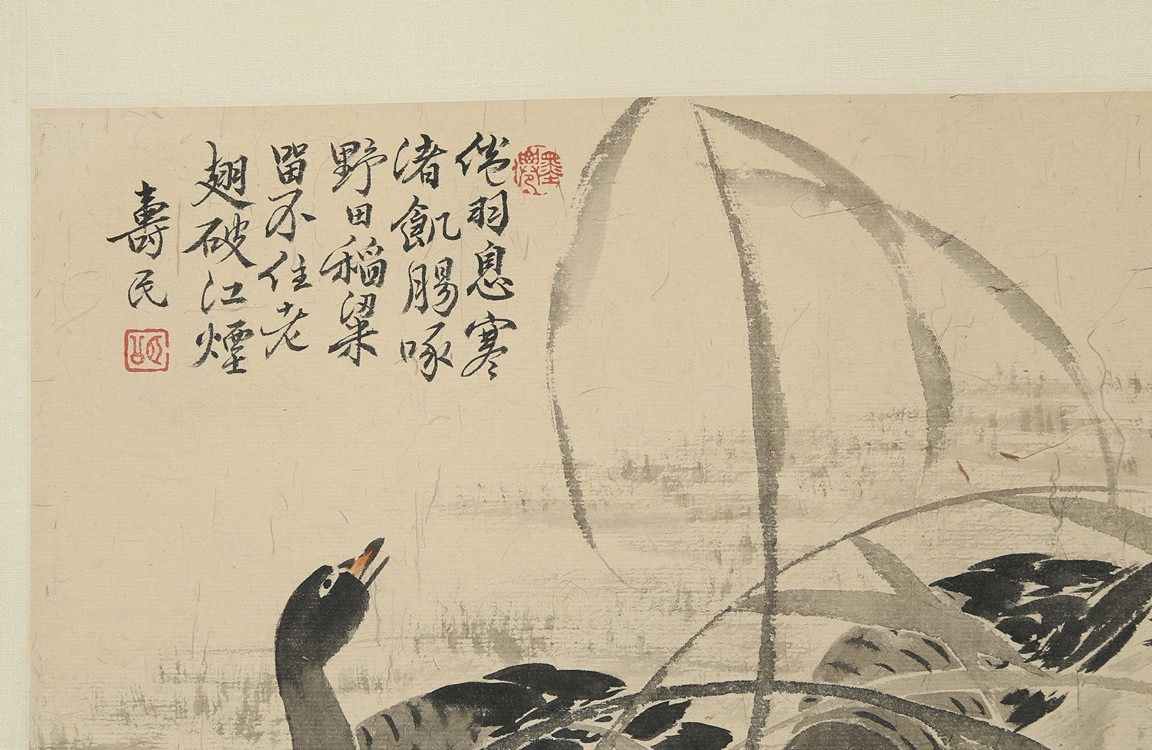 倦羽息寒
渚飢腸啄
野田稻粱
留不住老
翅破江煙
壽民